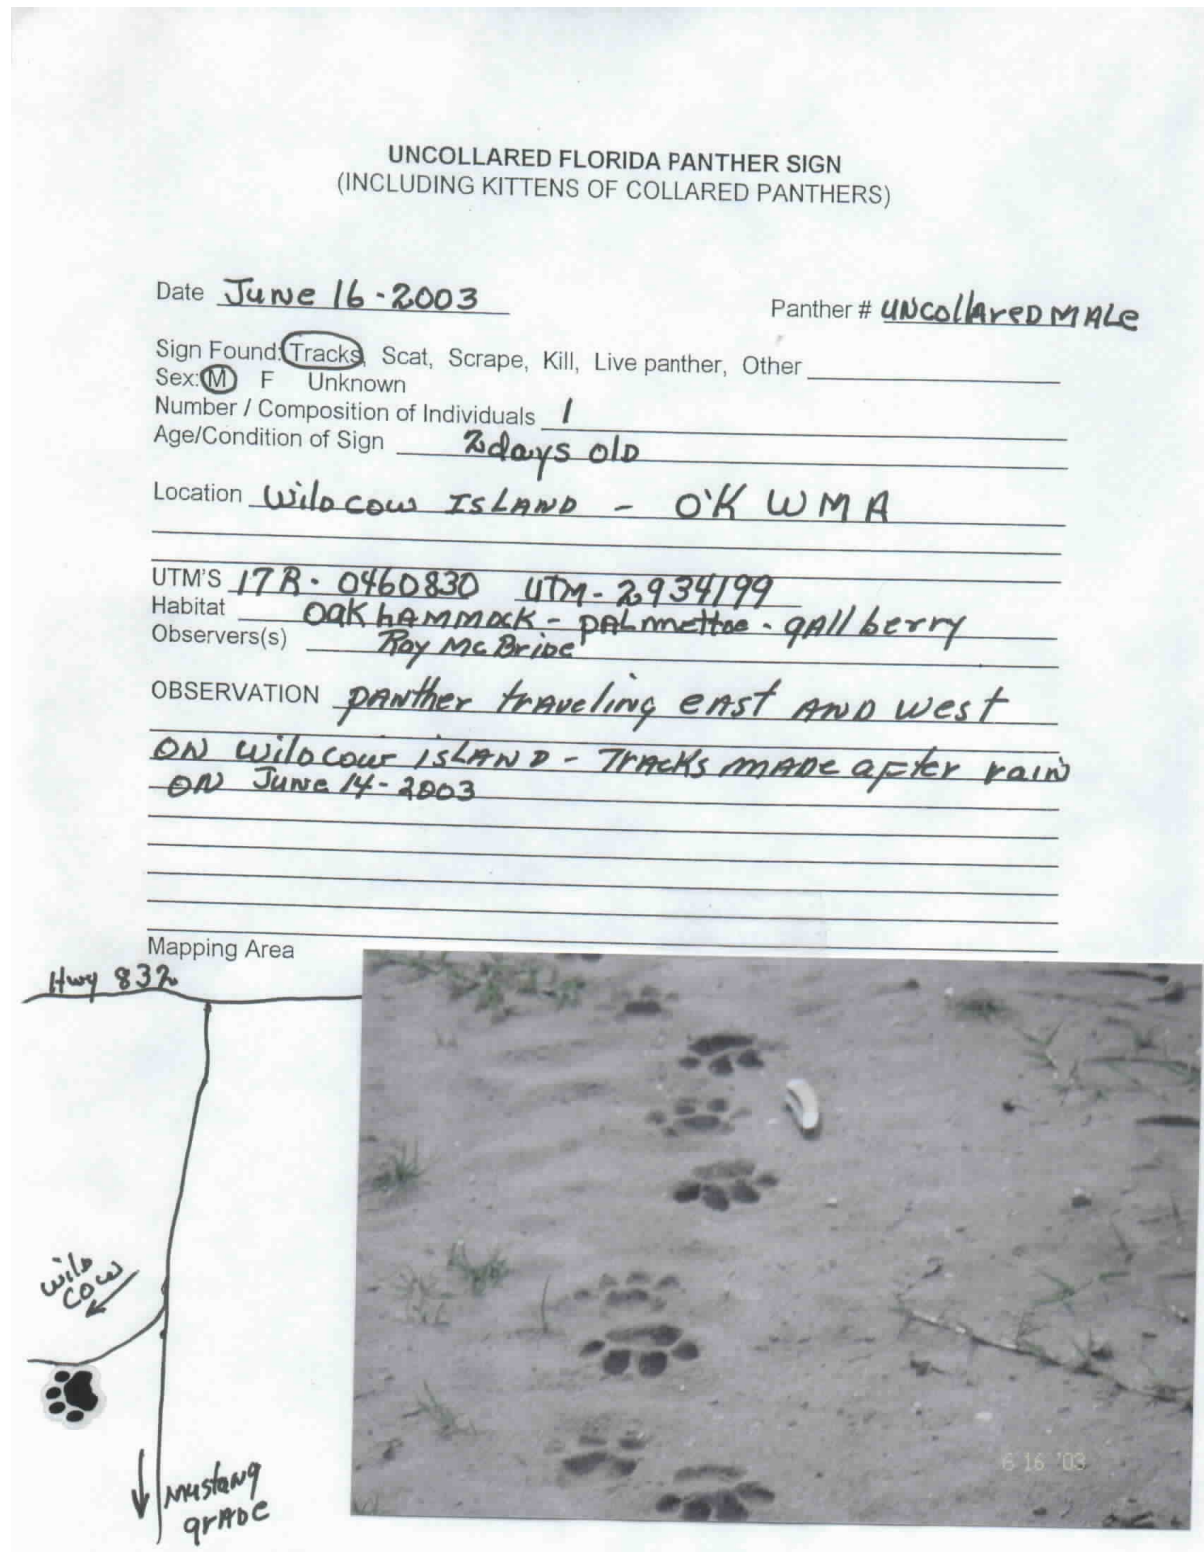 UNCOLLARED FLORIDA PANTHER SIGN
(INCLUDING KITTENS OF COLLARED PANTHERS)
Date June 16-2003
Panther # UNCollAreD MALe
Sign Found: Tracks, Scat, Scrape, Kill, Live panther, Other
Sex: M F Unknown
Number / Composition of Individuals 1
Age/Condition of Sign 2 days old
Location Wild cow ISLAND - O'K WMA
UTM'S 17R. 0460830 UTM-2934199
Habitat Oak hAMMOCK - pALmettoe - gAllberry
Observers(s) Roy McBride
OBSERVATION pANther trAveling eAst AND west
ON wild cow iSLAND - TrAcks mADe after rain
ON June 14-2003
Mapping Area
Hwy 832
wild
cow
Mustang
grADe
6 16 '03